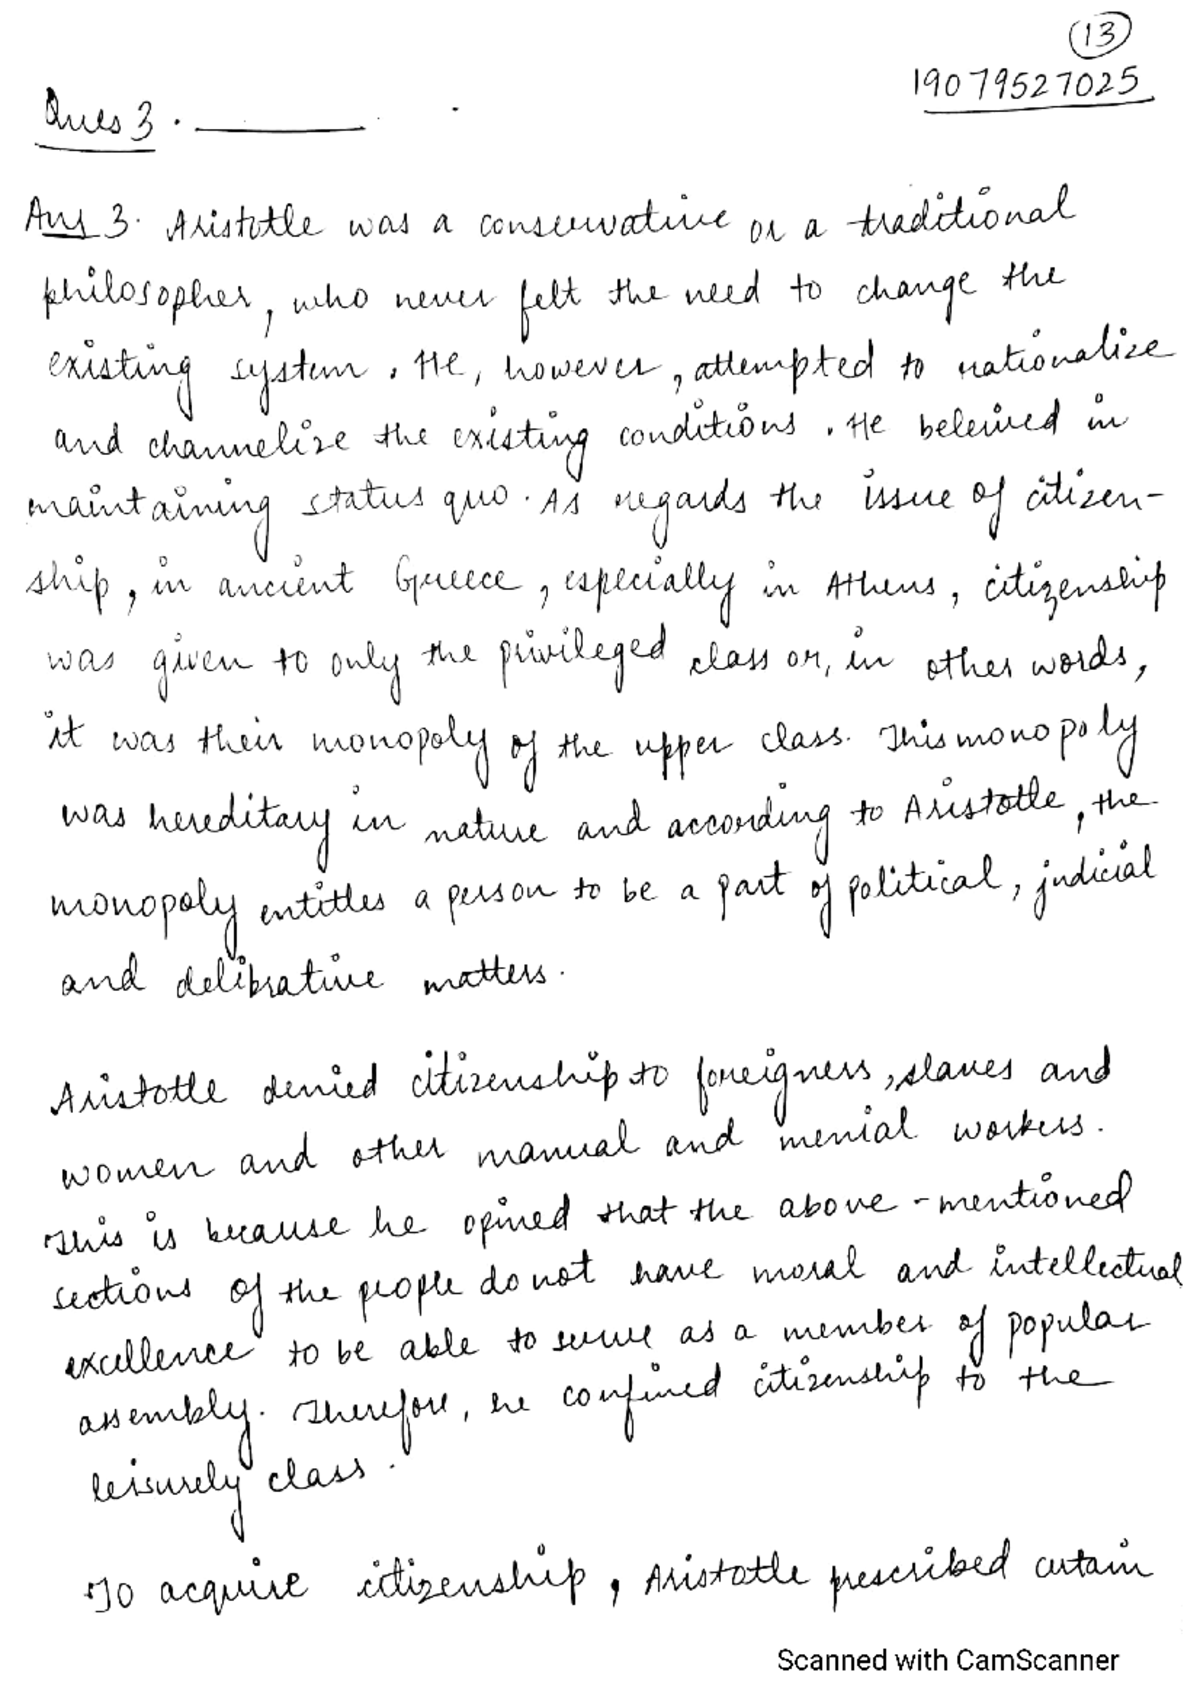 13
19079527025
Ques 3.
Ans 3. Aristotle was a conservative or a traditional
philosopher, who never felt the need to change the
existing system. He, however, attempted to rationalize
and channelize the existing conditions. He beleived in
maintaining status quo. As regards the issue of citizen-
ship, in ancient Greece, especially in Athens, citizenship
was given to only the privileged class or, in other words,
it was their monopoly of the upper class. This monopoly
was hereditary in nature and according to Aristotle, the
monopoly entitles a person to be a part of political, judicial
and delibrative matters.
Aristotle denied citizenship to foreigners, slaves and
women and other manual and menial workers.
This is because he opined that the above-mentioned
sections of the people do not have moral and intellectual
excellence to be able to serve as a member of popular
assembly. Therefore, he confined citizenship to the
leisurely class.
To acquire citizenship, Aristotle prescribed certain
Scanned with CamScanner